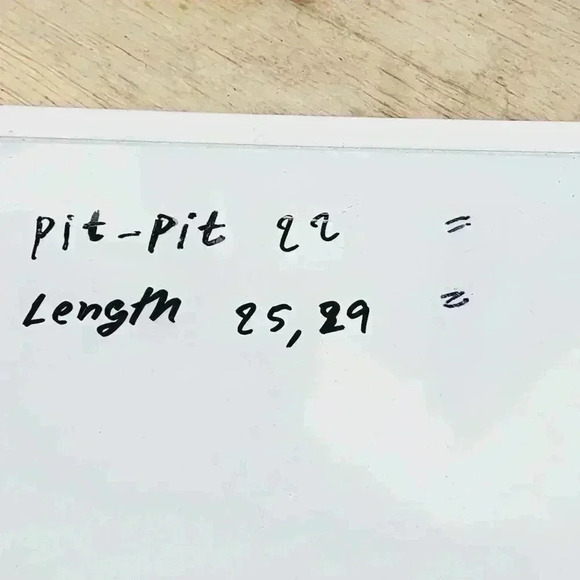 pit-pit 22 =
Length 25,29 =